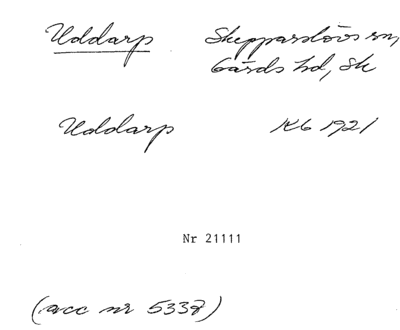 Uddarp Skepparslövs sn,
Gärds hd, Sk
Uddarp Kb 1921
Nr 21111
(acc nr 5338)